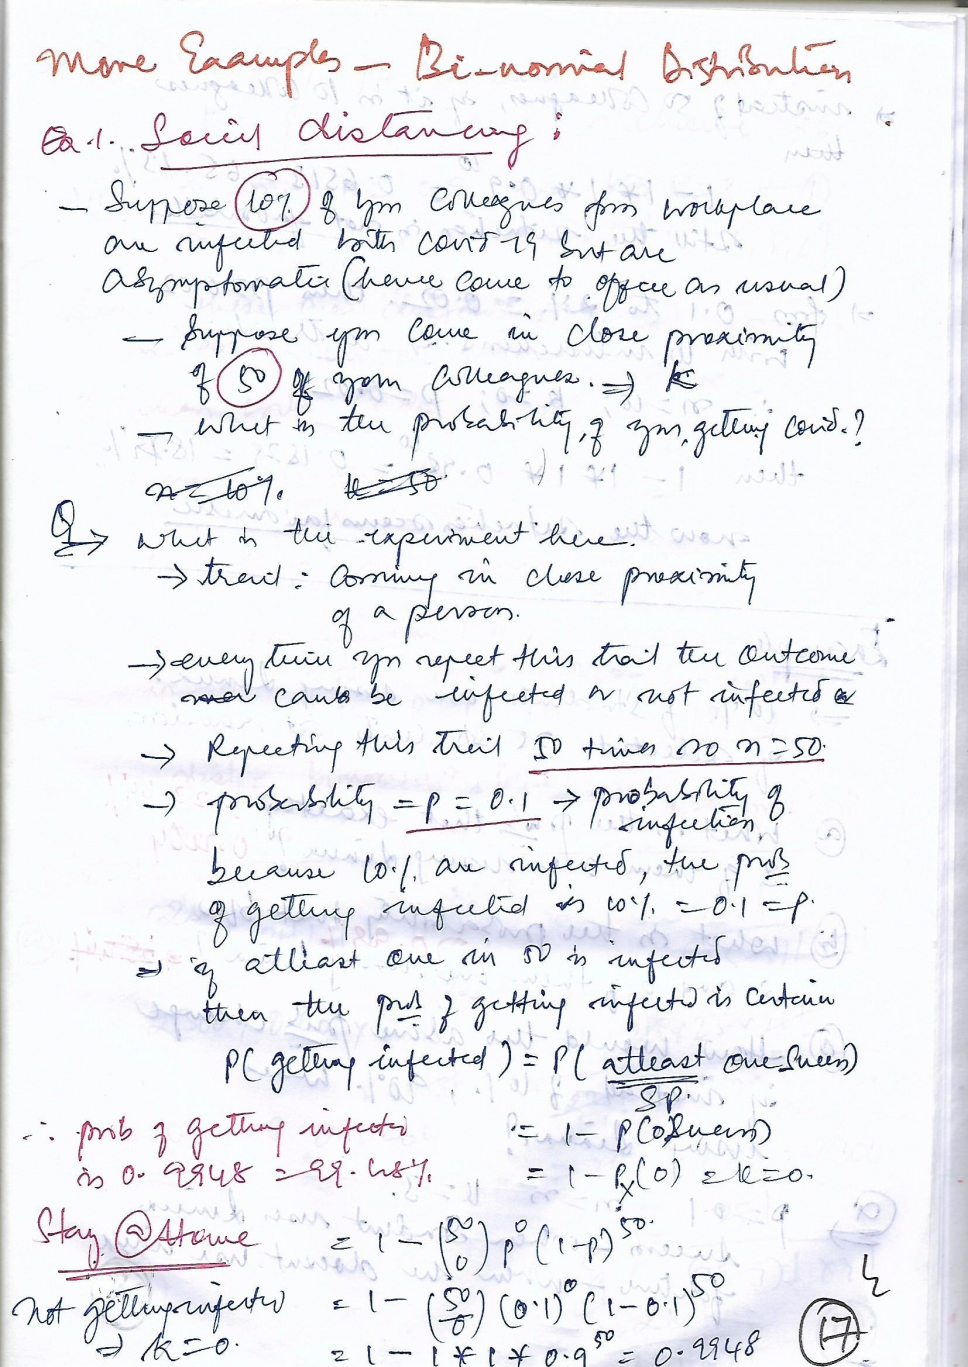 More Examples - Bi-normial Distribution
Ex.1. Social distancing:
- Suppose 10% of your colleagues from workplace
are infected with covid-19 but are
asymptomatic (hence came to office as usual)
- Suppose you come in close proximity
of 50 of your colleagues. ⇒ k
- what is the probability of you getting covid.?
n = 10%. k = 50
Q ⇒ what is the experiment here.
→ trail: Coming in close proximity
of a person.
→ every time you repeat this trail the outcome
can be infected or not infected
→ Repeating this trail 50 times so n = 50.
→ probability = p = 0.1 → probability of
infection
because 10% are infected, the prob
of getting infected is 10% = 0.1 = p.
⇒ if atleast one in 50 is infected
then the prob of getting infected is certain
P(getting infected) = P(atleast one Sucess)
∴ prob of getting infected
is 0.9948 = 99.48%
= 1 - P(0 Sucess)
= 1 - Px(0) = k=0.
Stay @ Home
Not getting infected
⇒ k = 0.
= 1 - (50 0) p^0 (1-p)^50
= 1 - (50/0) (0.1)^0 (1-0.1)^50
= 1 - 1 * 1 * 0.9^50 = 0.9948
17